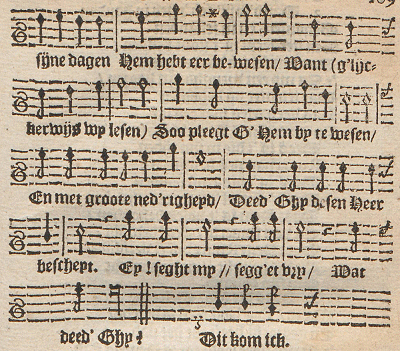 sijne dagen Hem hebt eer be-wesen/ Want (g'lijc-
kerwijs wy lesen) Soo pleegt G' Hem by te wesen/
En met groote ned'righeyd/ Deed' Ghy desen Heer
bescheyt. Ey! seght my // segg'et vry/ Wat
deed' Ghy? Dit kom ick.